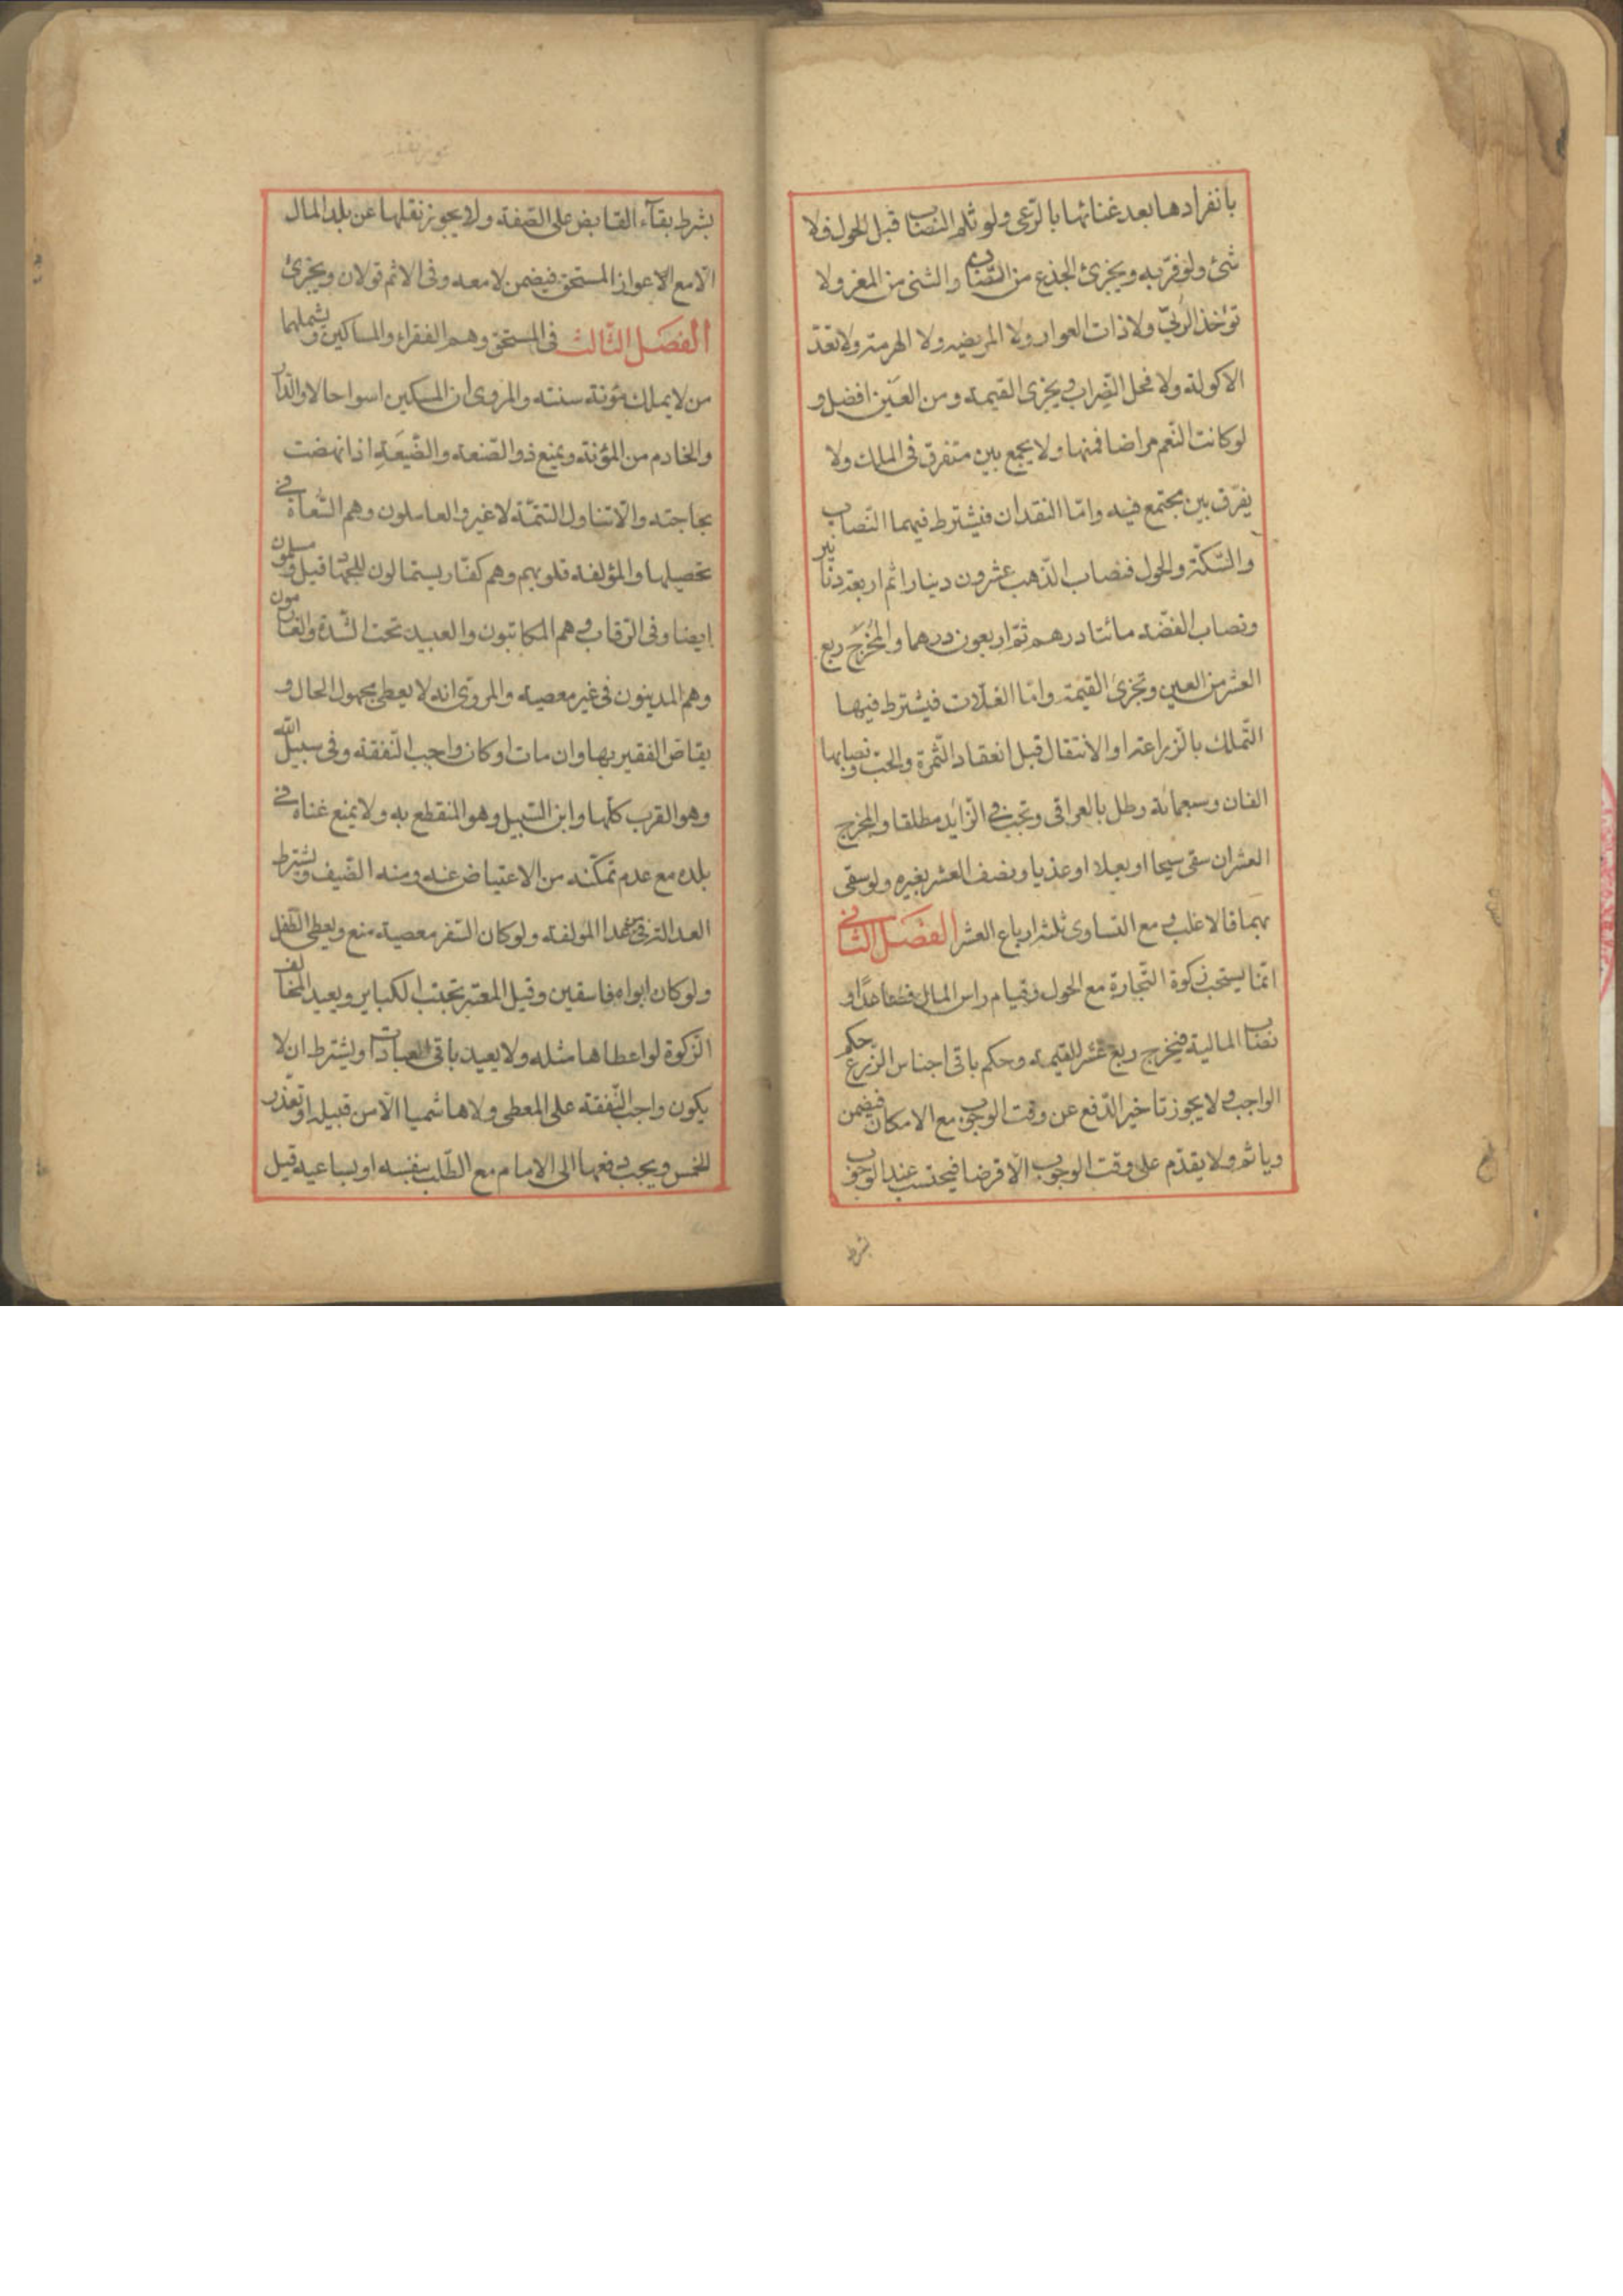 بانفرادها بعد غنائها بالرّعى ولو ثلم النصاب قبل الحول فلا
شئ ولو فرّ به ويجزئ الجذع من الضان والثنى من المعز ولا
تؤخذ الرُبّى ولا ذات العوار ولا المريضه ولا الهرمة ولا تعدّ
الاكولة ولا فحل الضراب ويجزى القيمة ومن العين افضل و
لو كانت النّعم مراضا فمنها ولا يجمع بين متفرق فى الملك ولا
يفرّق بين مجتمع فيه وامّا النقدان فيشترط فيهما النّصاب
والسّكّة والحول فنصاب الذّهب عشرون دينارا ثم اربعة دنانير
ونصاب الفضّة مائتا درهم ثمّ اربعون درهما والمُخرَج ربع
العشر من العين وتجزئ القيمة وامّا الغلّات فيشترط فيها
التّملك بالزراعة او الانتقال قبل انعقاد الثّمرة والحبّ ونصابها
الفان وسبعمائة رطل بالعراقى وتجب فى الزائد مطلقا والمخرج
العشر ان سقى سيحا او بعلا او عذيا ونصف العشر بغيره ولو سقى
بهما فالاغلب ومع التساوى ثلثة ارباع العشر الفصل الثانى
انّما يستحب زكوة التّجارة مع الحول وقيام راس المال فصاعدًا و
نصاب المالية فيخرج ربع عشر القيمة وحكم باقى اجناس الزّرع حكم
الواجب ولا يجوز تاخير الدّفع عن وقت الوجوب مع الامكان فيضمن
وياثم ولا يقدّم على وقت الوجوب الّا قرضا فيحتسب عند الوجوب
بشرط
بشرط بقآء القابض على الصّفة ولا يجوز نقلها عن بلد المال
الّا مع الاعواز المستحق فيضمن لا معه وفى الاثم قولان ويجزئ
الفصل الثّالث فى المستحق وهم الفقراء والمساكين ويشملهما
من لا يملك مؤنة سنته والمروى ان المسكين اسوا حالا والدّار
والخادم من المؤنة ويمنع ذو الصّنعة والضّيعَة اذا نهضت
بحاجته والّا تناول التتمّة لا غير والعاملون وهم السُّعاة فى
تحصيلها والمؤلفة قلوبهم وهم كفّار يستمالون للجهاد قيل ومسلمون
ايضا وفى الرّقاب وهم المكاتبون والعبيد تحت الشّدة والغارمون
وهم المدينون فى غير معصية والمروىّ انه لا يعطى مجهول الحال و
يقاصّ الفقير بها وان مات او كان واجب النّفقة وفى سبيل الله
وهو القرب كلّها وابن السّبيل وهو المنقطع به ولا يمنع غناه فى
بلده مع عدم تمكّنه من الاعتياض عنه ومنه الضّيف ويشترط
العدالة فى عدا المولفة ولو كان السّفر معصية منع ويعطى الطّفل
ولو كان ابواه فاسقين وقيل المعتبر تجنّب الكباير ويعيد المخالف
الزكوة لو اعطاها مثله ولا يعيد باقى العبادات ويشترط ان لا
يكون واجب النّفقة على المعطى ولا هاشميا الّا من قبيله او تعذر
الخمس ويجب دفعها الى الامام مع الطّلب بنفسه او بساعيه قيل